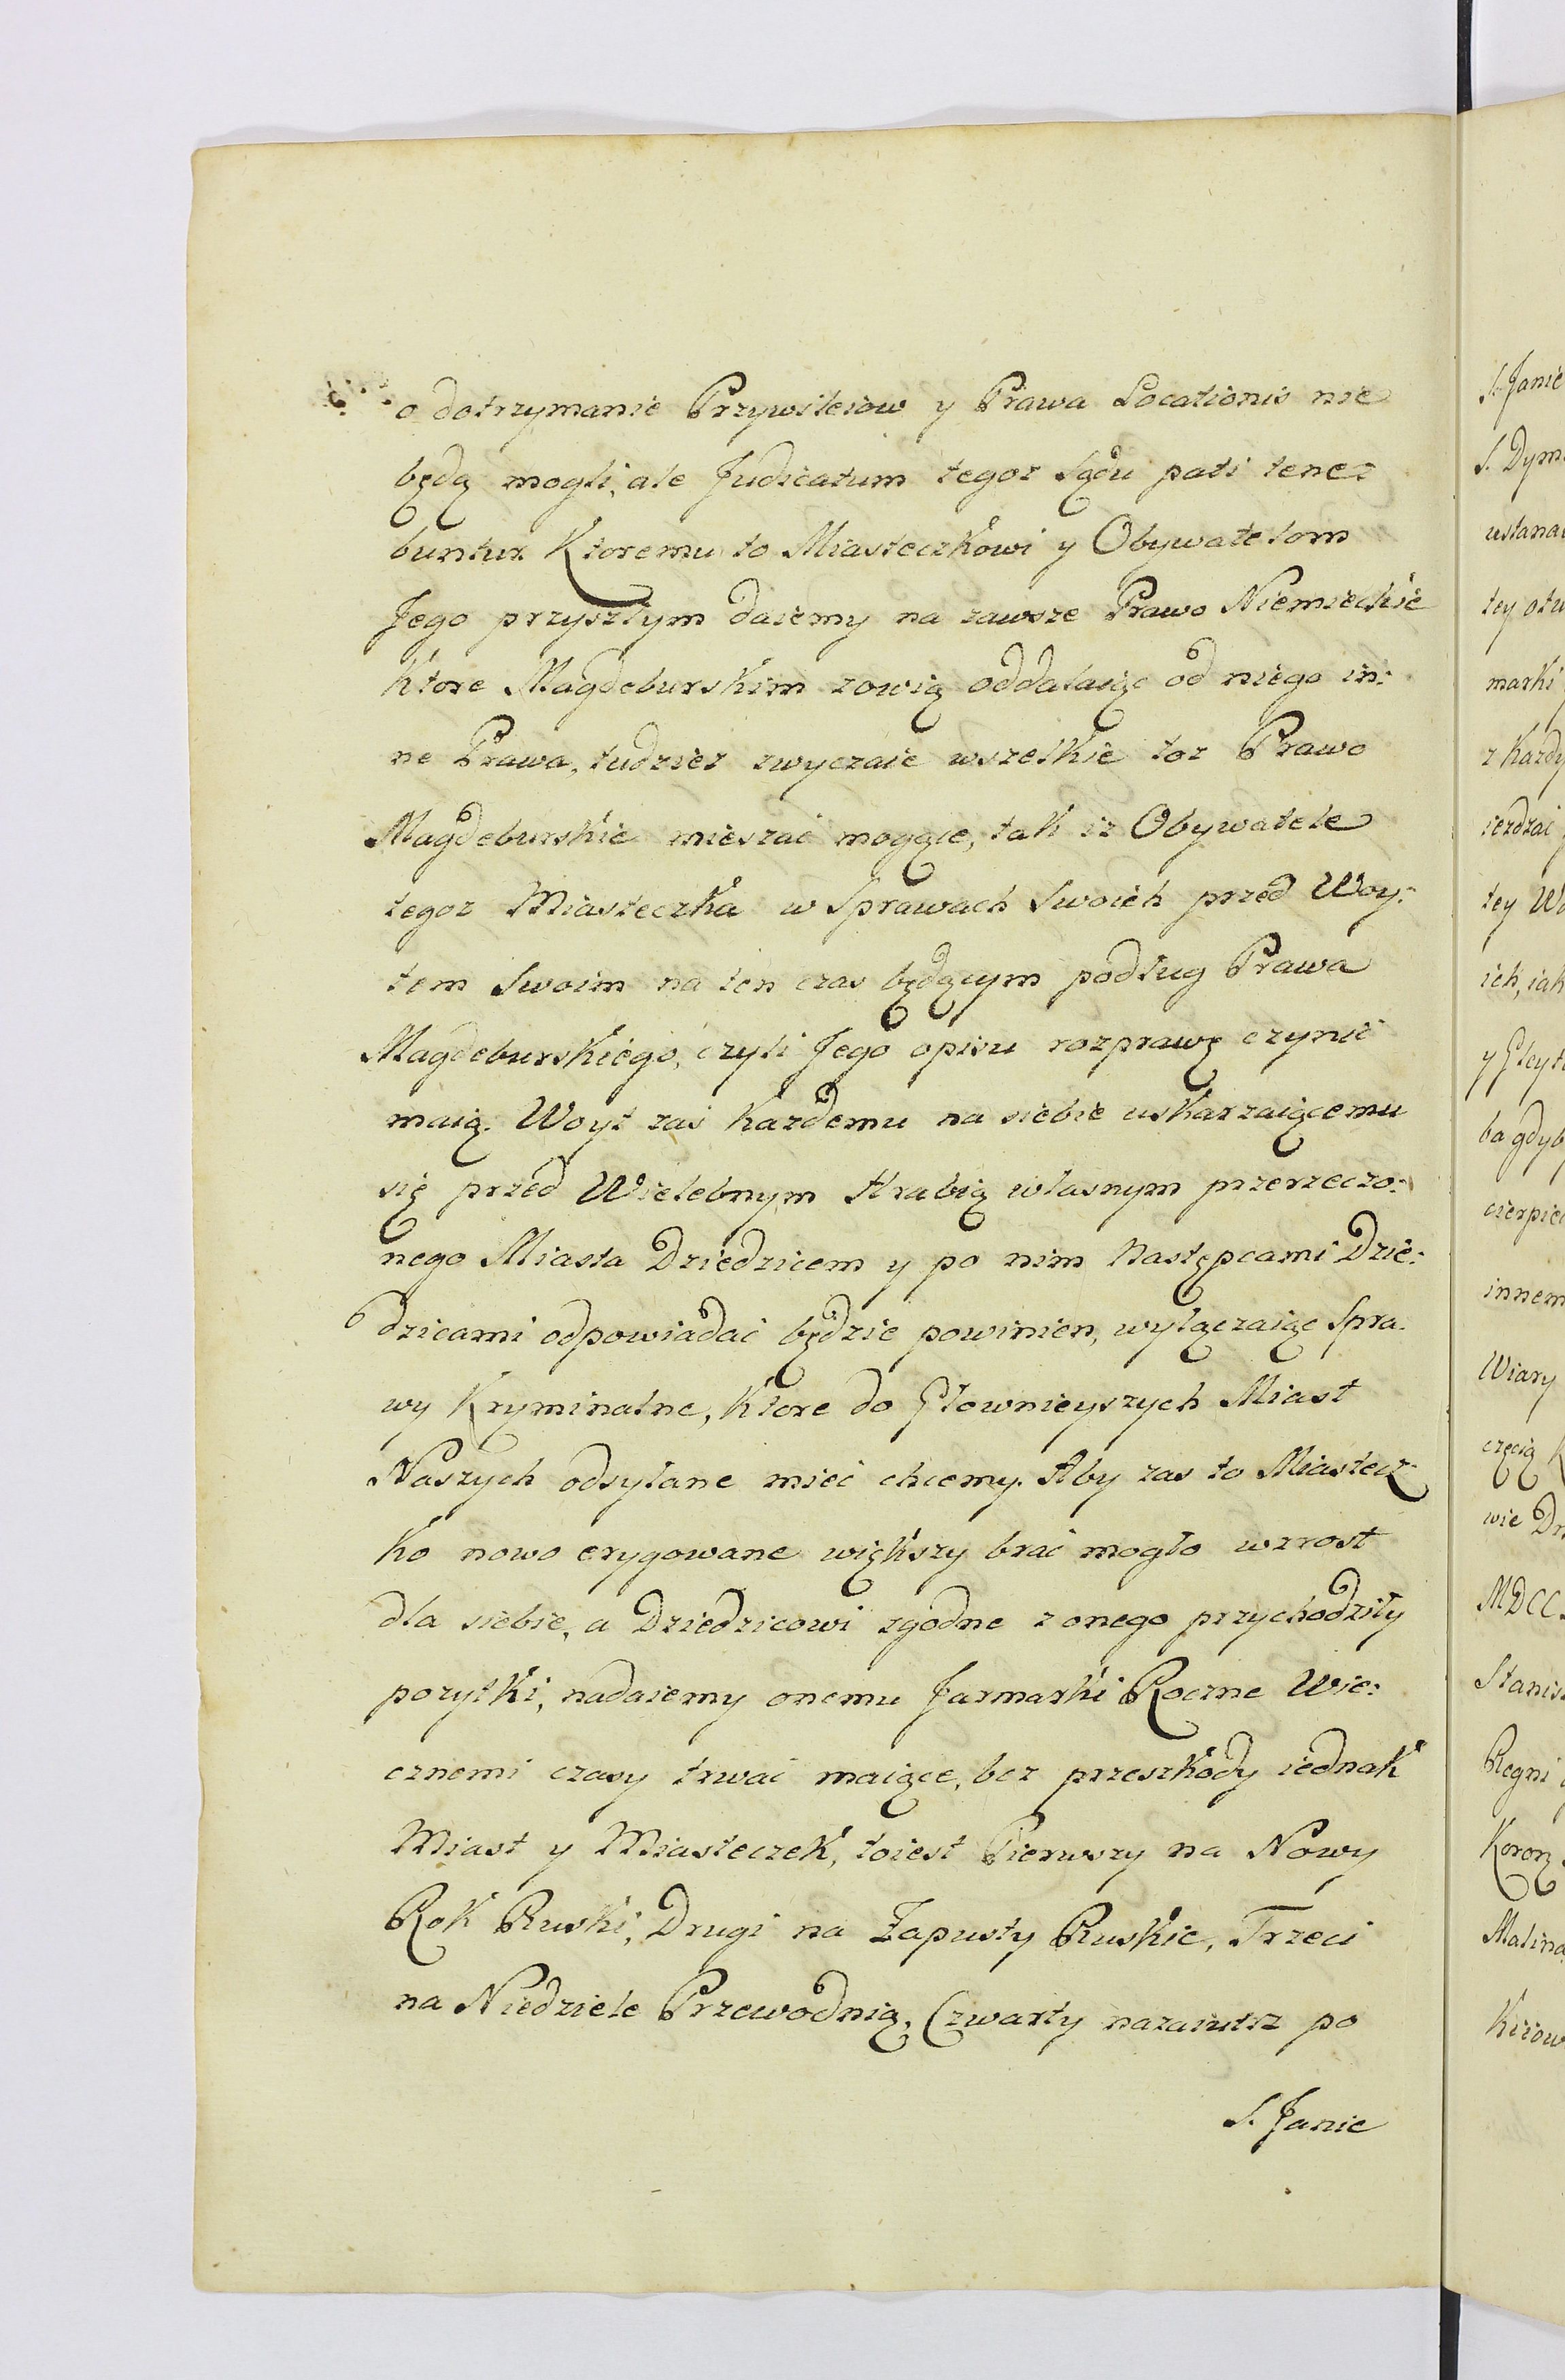 o dotrzymanie Przywileiow y Prawa Locationis nie
będą mogli, ale Judicatum tegoz Sądu pati tene:
buntur. Ktoremu to Miasteczkowi y Obywatelom
Jego przyszłym daiemy na zawsze Prawo Niemieckie
ktore Magdeburskim zowią oddalaiąc od niego in:
ne Prawa, tudziesz zwyczaie wszelkie toz Prawo
Magdeburskie mieszać mogące, tak iz Obywatele
tegoz Miasteczka w Sprawach Swoich przed Woy:
tem Swoim na ten czas będącym podług Prawa
Magdeburskiego, czyli Jego opisu rozprawę czynić
maią. Woyt zaś kazdemu na siebie uskarzaiącemu
się przed Wielebnym Hrabią własnym przerzeczo:
nego Miasta Dziedzicem y po nim Następcami Dzie:
dzicami odpowiadać będzie powinien, wyłączaiąc Spra:
wy Kryminalne, ktore do Głownieyszych Miast
Naszych odsyłane mieć chcemy. Aby zas to Miastecz
ko nowo erygowane większy brać mogło wzrost
dla siebie, a Dziedzicowi zgodne z onego przychodziły
pozytki, nadaiemy onemu Jarmarki Roczne Wie:
cznemi czasy trwać maiące, bez przeszkody iednak
Miast y Miasteczek, toiest Pierwszy na Nowy
Rok Ruski, Drugi na Zapusty Ruskie, Trzeci
na Niedziele Przewodnią, Czwarty nazaiutrz po
S. Janie
S. Janie
S. Dym
ustana
tey
marki
z kazdy
iezdzać
tey
ich, iak
y Gleyt
ba gdyb
cierpie
innem
Wiary
częcią
wie
MDCC
Stanis
Regni
Koron
Malina
Kiiow